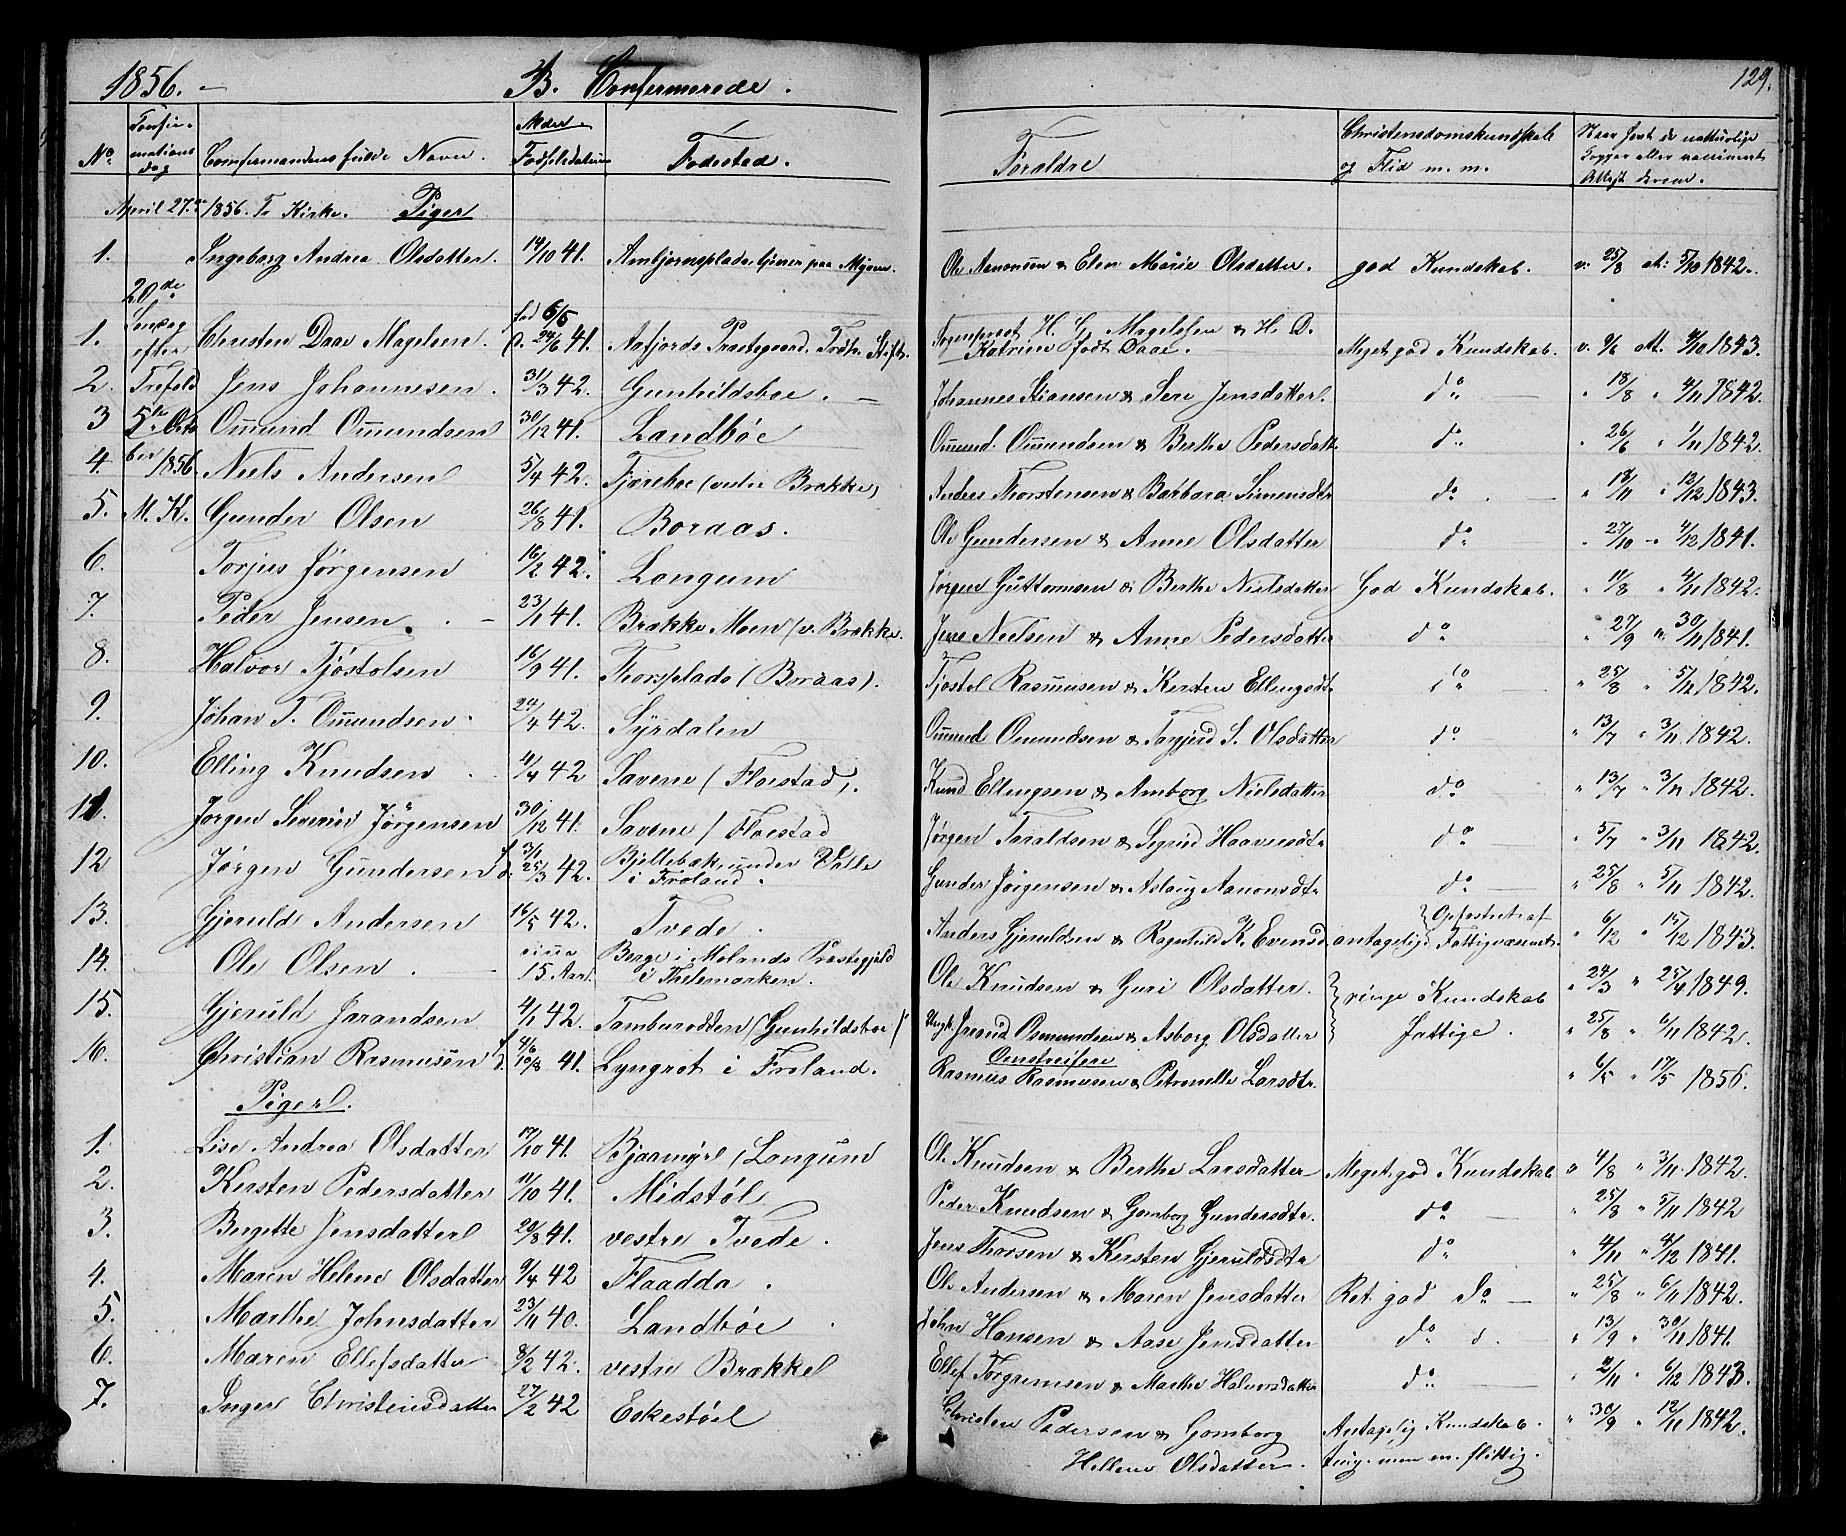 1856. – B. Confirmerede.
129.
No. Confirmations dag Confirmandens fulde Navn. Alder. Fødselsdatum Fødested. Forældre Christendomskundskab og Flid m. m. Naar havt de naturlige Kopper eller vaccineret Attest derom.
April 27de 1856. Tr. Kirke. Piger
1. Ingeborg Andrea Olsdatter. 14/10 41. Ambjørnsplads, tjener paa Mjøen. Ole Aanonsen & Elen Marie Olsdatter. god Kundskab. v: 25/8 at: 5/10 1842.
20de Søndag efter Trefold 5te October 1856. M. K.
1. Christen Daae Magelsen. fød 6/5 d. 24/6 41. Aafjords Præstegaard, Trdh. Stift. Sogneprest H. G. Magelssen & H. D. Katrine født Daae. Meget god Kundskab. v. 9/6 att. 1843.
2. Jens Johannesen. 31/3 42. Gunhildsboe. – Johannes Stiansen & Seri Jensdatter. do " 18/8 " 4/11 1842.
3 Omund Omundsen 30/12 41. Landbøe Omund Omundsen & Berthe Pedersdatt. do " 26/6 " 1/11 1842.
4. Niels Andersen 5/4 42. Fjæreboe (vestre Brække) Anders Thorstensen & Barbara Simensdtr do. " 18/11 " 12/12 1843.
5. Gunder Olsen 26/8 41. Boraas. Ole Gundersen & Anne Olsdatter do " 27/10 " 4/12 1841.
6. Torjus Jørgensen 16/2 42. Longum Jørgen Guttormsen & Berthe Nielsdatter God Kundskab. " 11/8 " 4/11 1842.
7. Peder Jensen. – 23/1 41. Brække Moen (v. Brække. Jens Nielsen & Anne Pedersdatter do " 27/9 " 30/11 1841.
8. Halvor Tjøstolsen 16/9 41. Thorsplads (Boraas). Tjøstol Rasmusen & Kersten Ellingsdt. do " 25/8 " 5/11 1842.
9. Johan T. Omundsen. 24/4 42. Syrdalen Omund Omundsen & Torjerd S. Olsdatter do " 13/7 " 3/11 1842.
10. Elling Knudsen 4/4 42 Savene (Floestad). Knud Ellingsen & Amborg Nielsdatter do " 13/7 " 3/11 1842.
11. Jørgen Severin Jørgensen 30/12 41. Savene / Floestad Jørgen Taraldsen & Sigrid Haaversdtr do " 5/7 " 3/11 1842.
12 Jørgen Gundersen f. 3/1 d. 25/3 42. Bjellebæk under Valle i Froland. Gunder Jørgensen & Aslaug Aanonsdtr do " 25/8 " 5/11 1842.
13. Gjeruld Andersen 16/5 42. Tvede. Anders Gjeruldsen & Ragnhild K. Evensd. antagelig Opfostret af Fattigvæsenet. " 6/12 " 15/12 1843.
14. Ole Olsen. – circa 15 Aar. Berge i Molands Præstegjeld i Thelemarken. Ole Knudsen & Guri Olsdatter. ringe Kundskab " 24/3 " 25/4 1849.
15. Gjeruld Jarandsen 4/1 42. Tamburodden (Gunhildsboe) Ungk. Jarand Osmundsen & Asborg Olsdatter fattige. " 25/8 " 6/11 1842.
16. Christian Rasmusen f. 4/6 d. 10/8 41. Lyngrot i Froland. Omstreifere Rasmus Rasmusen & Petronelle Larsdtr. " 6/5 " 17/5 1856.
Piger.
1. Lise Andrea Olsdatter 17/10 41. Bjaamyr (Longum Ole Knudsen & Berthe Larsdatter Meget god Kundskab " 4/8 " 3/11 1842.
2. Kersten Pedersdatter 11/10 41. Midstøl Peder Knudsen & Gomborg Gundersdtr. do " 25/8 " 5/11 1842
3. Birgitte Jensdatter 20/8 41. vestre Tvede. Jens Thorsen & Kersten Gjeruldsdtr do " 4/11 " 4/12 1841.
4. Maren Helene Olsdatter 9/4 42 Flaadda. Ole Andersen & Maren Jensdatter Ret god do – " 25/8 " 6/11 1842.
5. Marthe Johnsdatter 23/11 40. Landbøe. John Hansen & Aase Jensdatter do d. " 13/9 " 30/11 1841.
6. Maren Ellefsdatter 8/2 42. vestre Brække Ellef Torgrimsen & Marthe Halvorsdatter do " 2/11 " 6/12 1843.
7. Inger Christensdatter 27/2 42 Eskestøel Christen Pedersen & Gomborg Antagelig Kundskab. " 30/9 " 12/11 1842.
Hellene Olsdatter. men m. flittig.